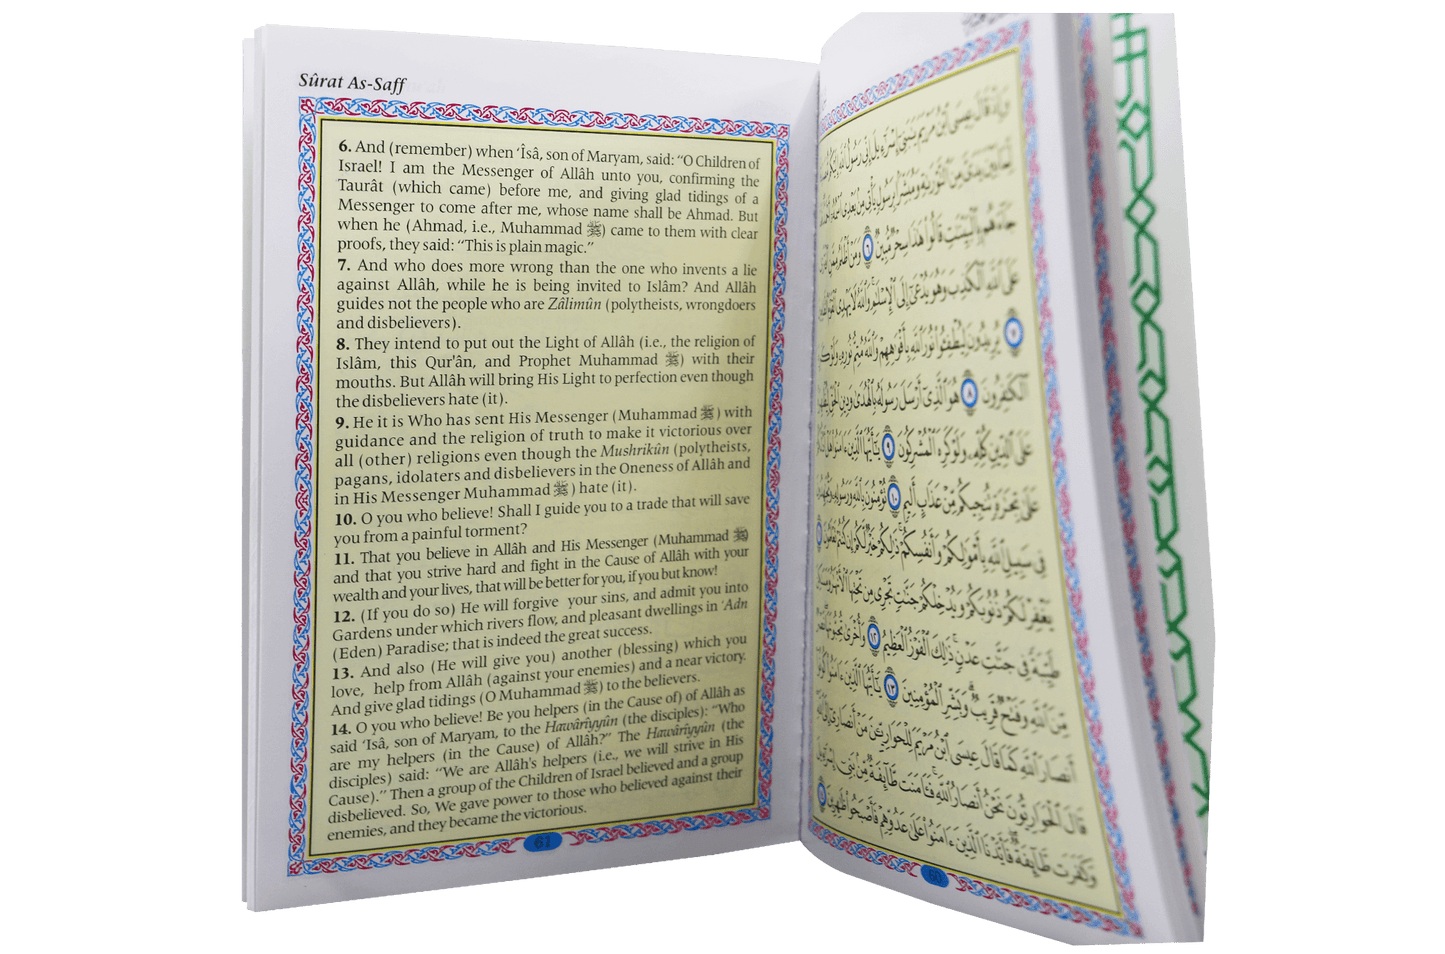 Sûrat As-Saff
6. And (remember) when ‘Îsâ, son of Maryam, said: “O Children of
Israel! I am the Messenger of Allâh unto you, confirming the
Taurât (which came) before me, and giving glad tidings of a
Messenger to come after me, whose name shall be Ahmad. But
when he (Ahmad, i.e., Muhammad ﷺ) came to them with clear
proofs, they said: “This is plain magic.”
7. And who does more wrong than the one who invents a lie
against Allâh, while he is being invited to Islâm? And Allâh
guides not the people who are Zâlimûn (polytheists, wrongdoers
and disbelievers).
8. They intend to put out the Light of Allâh (i.e., the religion of
Islâm, this Qur'ân, and Prophet Muhammad ﷺ) with their
mouths. But Allâh will bring His Light to perfection even though
the disbelievers hate (it).
9. He it is Who has sent His Messenger (Muhammad ﷺ) with
guidance and the religion of truth to make it victorious over
all (other) religions even though the Mushrikûn (polytheists,
pagans, idolaters and disbelievers in the Oneness of Allâh and
in His Messenger Muhammad ﷺ) hate (it).
10. O you who believe! Shall I guide you to a trade that will save
you from a painful torment?
11. That you believe in Allâh and His Messenger (Muhammad ﷺ)
and that you strive hard and fight in the Cause of Allâh with your
wealth and your lives, that will be better for you, if you but know!
12. (If you do so) He will forgive your sins, and admit you into
Gardens under which rivers flow, and pleasant dwellings in ‘Adn
(Eden) Paradise; that is indeed the great success.
13. And also (He will give you) another (blessing) which you
love, help from Allâh (against your enemies) and a near victory.
And give glad tidings (O Muhammad ﷺ) to the believers.
14. O you who believe! Be you helpers (in the Cause of) of Allâh as
said ‘Isâ, son of Maryam, to the Hawâriyyûn (the disciples): “Who
are my helpers (in the Cause) of Allâh?” The Hawâriyyûn (the
disciples) said: “We are Allâh's helpers (i.e., we will strive in His
Cause).” Then a group of the Children of Israel believed and a group
disbelieved. So, We gave power to those who believed against their
enemies, and they became the victorious.
61
وَإِذْ قَالَ عِيسَى ٱبْنُ مَرْيَمَ يَٰبَنِىٓ إِسْرَٰٓءِيلَ إِنِّى رَسُولُ ٱللَّهِ إِلَيْكُم
يَدَىَّ مِنَ ٱلتَّوْرَىٰةِ وَمُبَشِّرًۢا بِرَسُولٍ يَأْتِى مِنۢ بَعْدِى ٱسْمُهُۥٓ
جَآءَهُم بِٱلْبَيِّنَٰتِ قَالُوا۟ هَٰذَا سِحْرٌ مُّبِينٌ ٦ وَمَنْ أَظْلَمُ مِمَّنِ
عَلَى ٱللَّهِ ٱلْكَذِبَ وَهُوَ يُدْعَىٰٓ إِلَى ٱلْإِسْلَٰمِ وَٱللَّهُ لَا يَهْدِى
٧ يُرِيدُونَ لِيُطْفِـُٔوا۟ نُورَ ٱللَّهِ بِأَفْوَٰهِهِمْ وَٱللَّهُ مُتِمُّ نُورِهِۦ
ٱلْكَٰفِرُونَ ٨ هُوَ ٱلَّذِىٓ أَرْسَلَ رَسُولَهُۥ بِٱلْهُدَىٰ وَدِينِ ٱلْحَقِّ
عَلَى ٱلدِّينِ كُلِّهِۦ وَلَوْ كَرِهَ ٱلْمُشْرِكُونَ ٩ يَٰٓأَيُّهَا ٱلَّذِينَ ءَامَنُوا۟
عَلَىٰ تِجَٰرَةٍ تُنجِيكُم مِّنْ عَذَابٍ أَلِيمٍ ١٠ تُؤْمِنُونَ بِٱللَّهِ وَرَسُولِهِۦ
فِى سَبِيلِ ٱللَّهِ بِأَمْوَٰلِكُمْ وَأَنفُسِكُمْ ذَٰلِكُمْ خَيْرٌ لَّكُمْ إِن كُنتُمْ
يَغْفِرْ لَكُمْ ذُنُوبَكُمْ وَيُدْخِلْكُمْ جَنَّٰتٍ تَجْرِى مِن تَحْتِهَا ٱلْأَنْهَٰرُ
طَيِّبَةً فِى جَنَّٰتِ عَدْنٍ ذَٰلِكَ ٱلْفَوْزُ ٱلْعَظِيمُ ١٢ وَأُخْرَىٰ تُحِبُّونَهَا
مِّنَ ٱللَّهِ وَفَتْحٌ قَرِيبٌ وَبَشِّرِ ٱلْمُؤْمِنِينَ ١٣ يَٰٓأَيُّهَا ٱلَّذِينَ ءَامَنُوا۟
أَنصَارَ ٱللَّهِ كَمَا قَالَ عِيسَى ٱبْنُ مَرْيَمَ لِلْحَوَارِيِّـۧنَ مَنْ أَنصَارِىٓ إِلَى ٱللَّهِ
قَالَ ٱلْحَوَارِيُّونَ نَحْنُ أَنصَارُ ٱللَّهِ فَـَٔامَنَت طَّآئِفَةٌ مِّنۢ بَنِىٓ
وَكَفَرَت طَّآئِفَةٌ فَأَيَّدْنَا ٱلَّذِينَ ءَامَنُوا۟ عَلَىٰ عَدُوِّهِمْ فَأَصْبَحُوا۟ ظَٰهِرِينَ
60